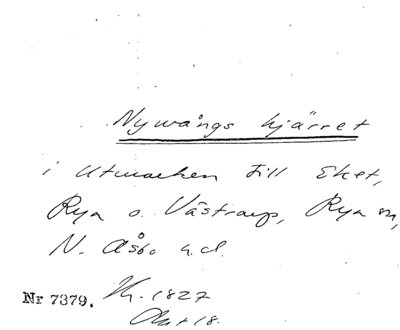 Nywångs kjärret
i Utmarken till Eket,
Rya o. Västraup, Rya sn,
N. Åsbo h.d.
Nr 7379. Kh. 1827
Okt 18.